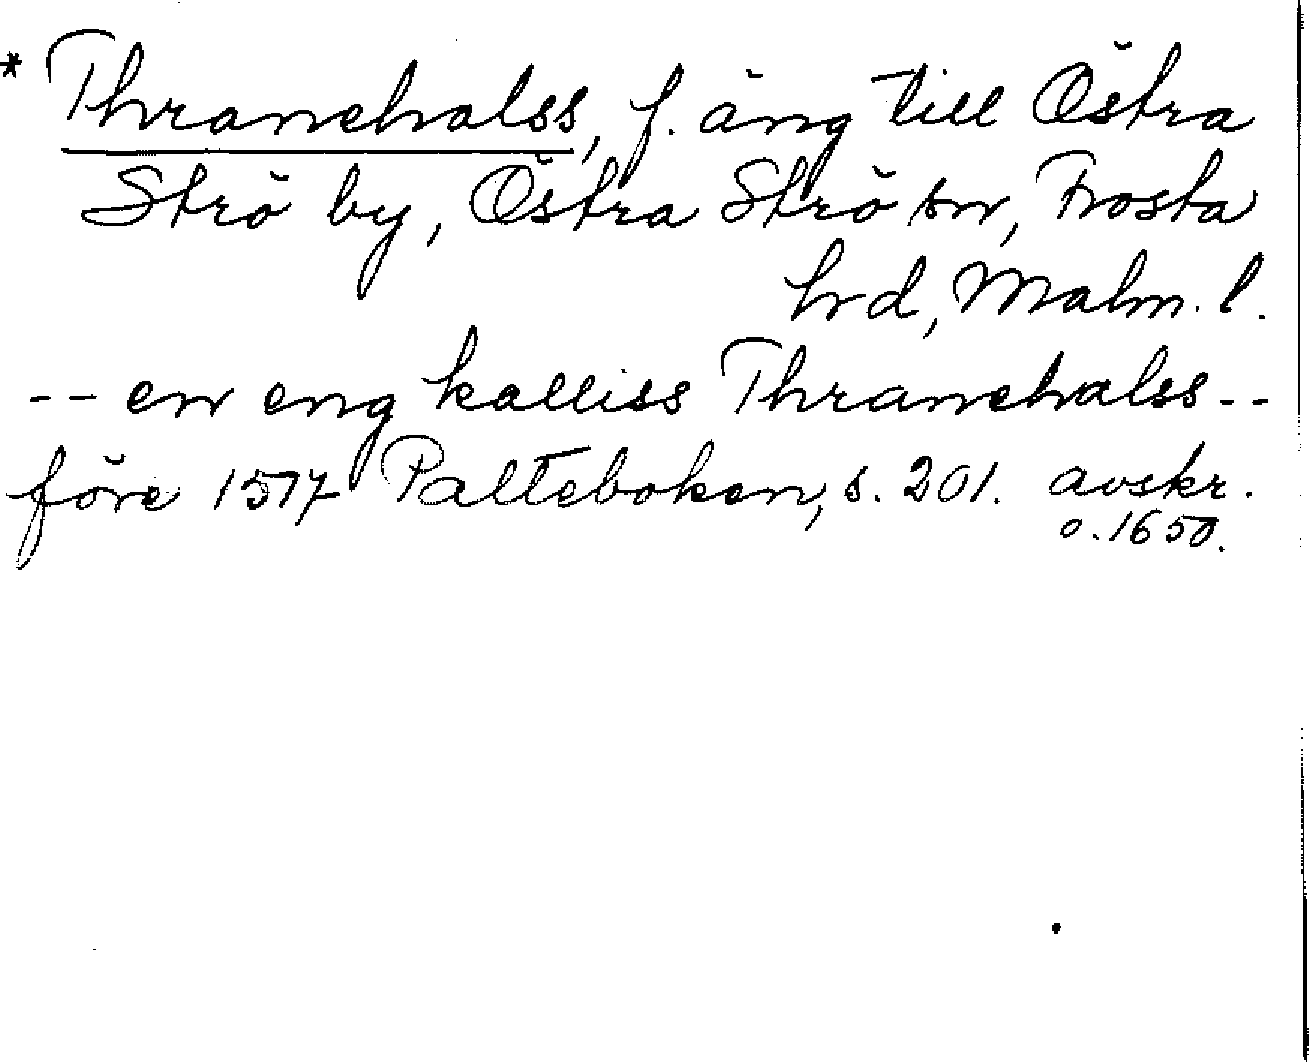 * Thranehalss, f. äng till Östra
Strö by, Östra Strö sn, Frosta
hrd, Malm. l.
-- en eng kalliss Thranehalss --
före 1577 Palteboken, s. 201. avskr.
o. 1650.